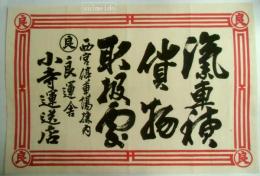 汽車積
貨物
取扱處
西宮停車場構内
良 良運舎
小寺運送店
良
良
良
良